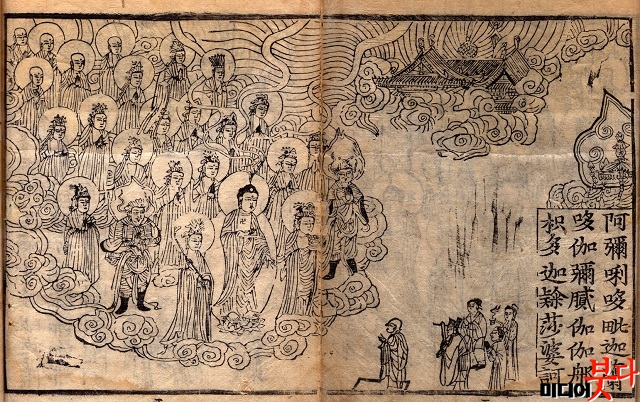 阿彌唎哆毗迦蘭
哆伽彌膩伽伽那
枳多迦隸莎婆訶
미디어 붓다